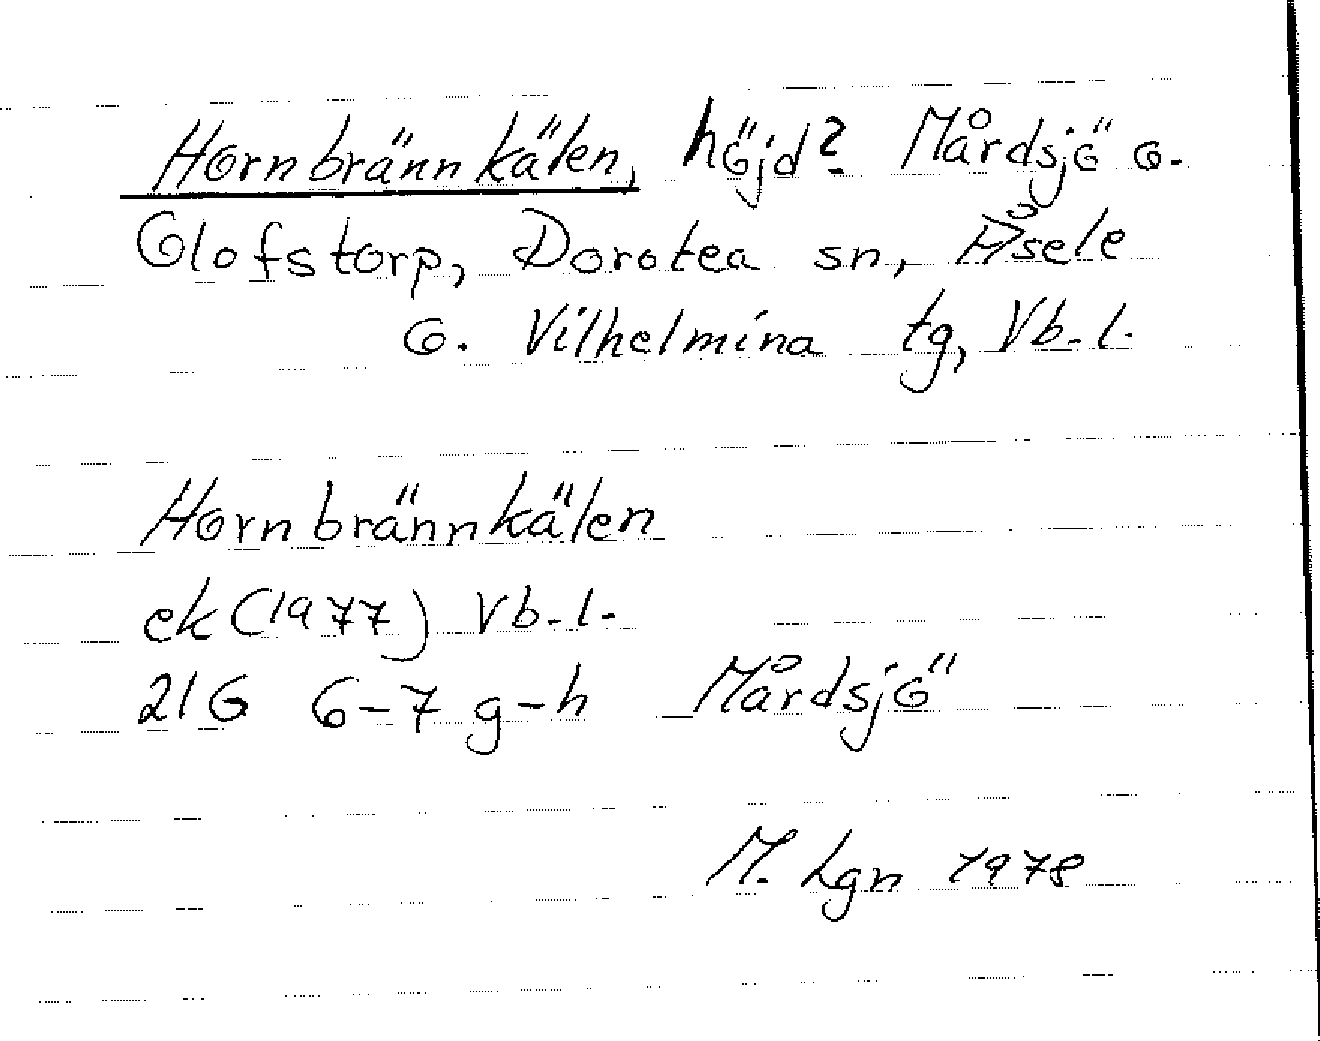 Hornbrännkälen, höjd? Mårdsjö o.
Olofstorp, Dorotea sn, Åsele
o. Vilhelmina tg, Vb. l.
Hornbrännkälen
ek (1977) Vb. l.
21G 6-7 g-h Mårdsjö
M. Lgn 1978